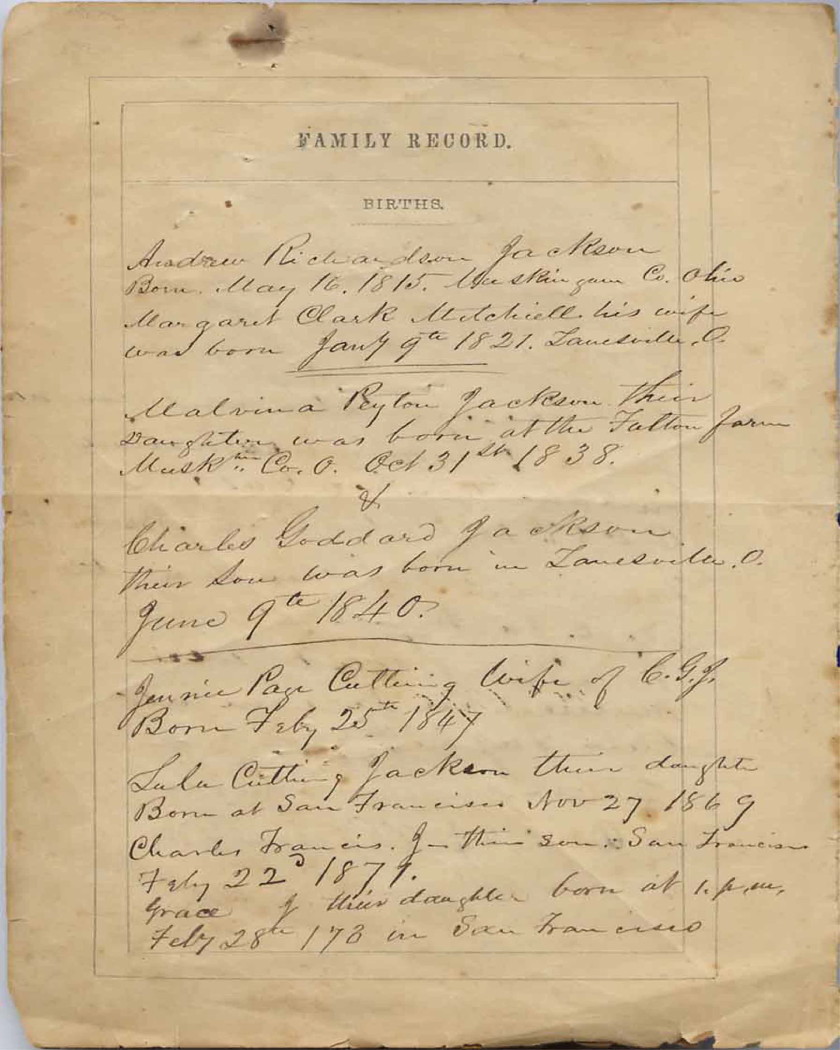 FAMILY RECORD.
BIRTHS.
Andrew Richardson Jackson
Born. May 16. 1815. Muskingum Co. Ohio
Margaret Clark Mitchell his wife
was born Jany 9th 1821. Zanesville, O.
Malvina Peyton Jackson their
Daughter was born at the Fulton farm
Musk'm Co. O. Oct 31st 1838.
&
Charles Goddard Jackson
their Son was born in Zanesville, O.
June 9th 1840.
Jennie Page Cutting Wife of C.G.J.
Born Feby 25th 1847
Lulu Cutting Jackson their daughter
Born at San Francisco Nov 27 1869
Charles Francis. J— their son. San Francisco
Feby 22d 1871.
Grace J their daughter born at 1. p.m.
Feby 28th 173 in San Francisco